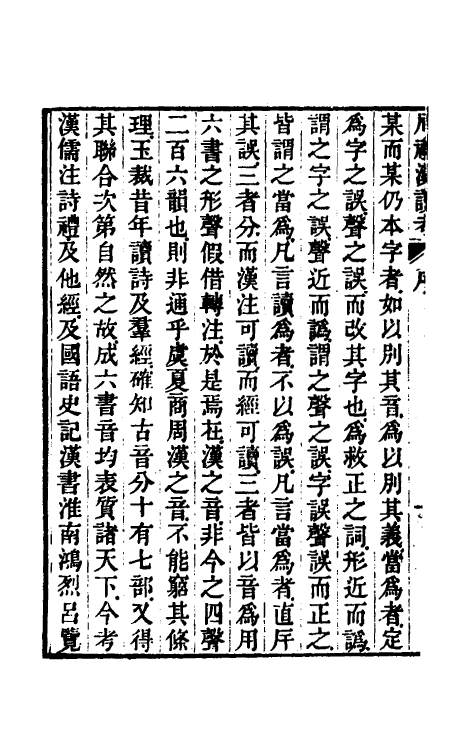 周禮漢讀考 序
某而某仍本字者如以別其音爲以別其義當爲者定
爲字之誤聲之誤而改其字也爲救正之詞形近而譌
謂之字之誤聲近而譌謂之聲之誤字誤聲誤而正之
皆謂之當爲凡言讀爲者不以爲誤凡言當爲者直斥
其誤三者分而漢注可讀而經可讀三者皆以音爲用
六書之形聲假借轉注於是焉在漢之音非今之四聲
二百六韻也則非通乎虞夏商周漢之音不能窮其條
理玉裁昔年讀詩及羣經確知古音分十有七部又得
其聯合次第自然之故成六書音均表質諸天下今考
漢儒注詩禮及他經及國語史記漢書淮南鴻烈呂覽